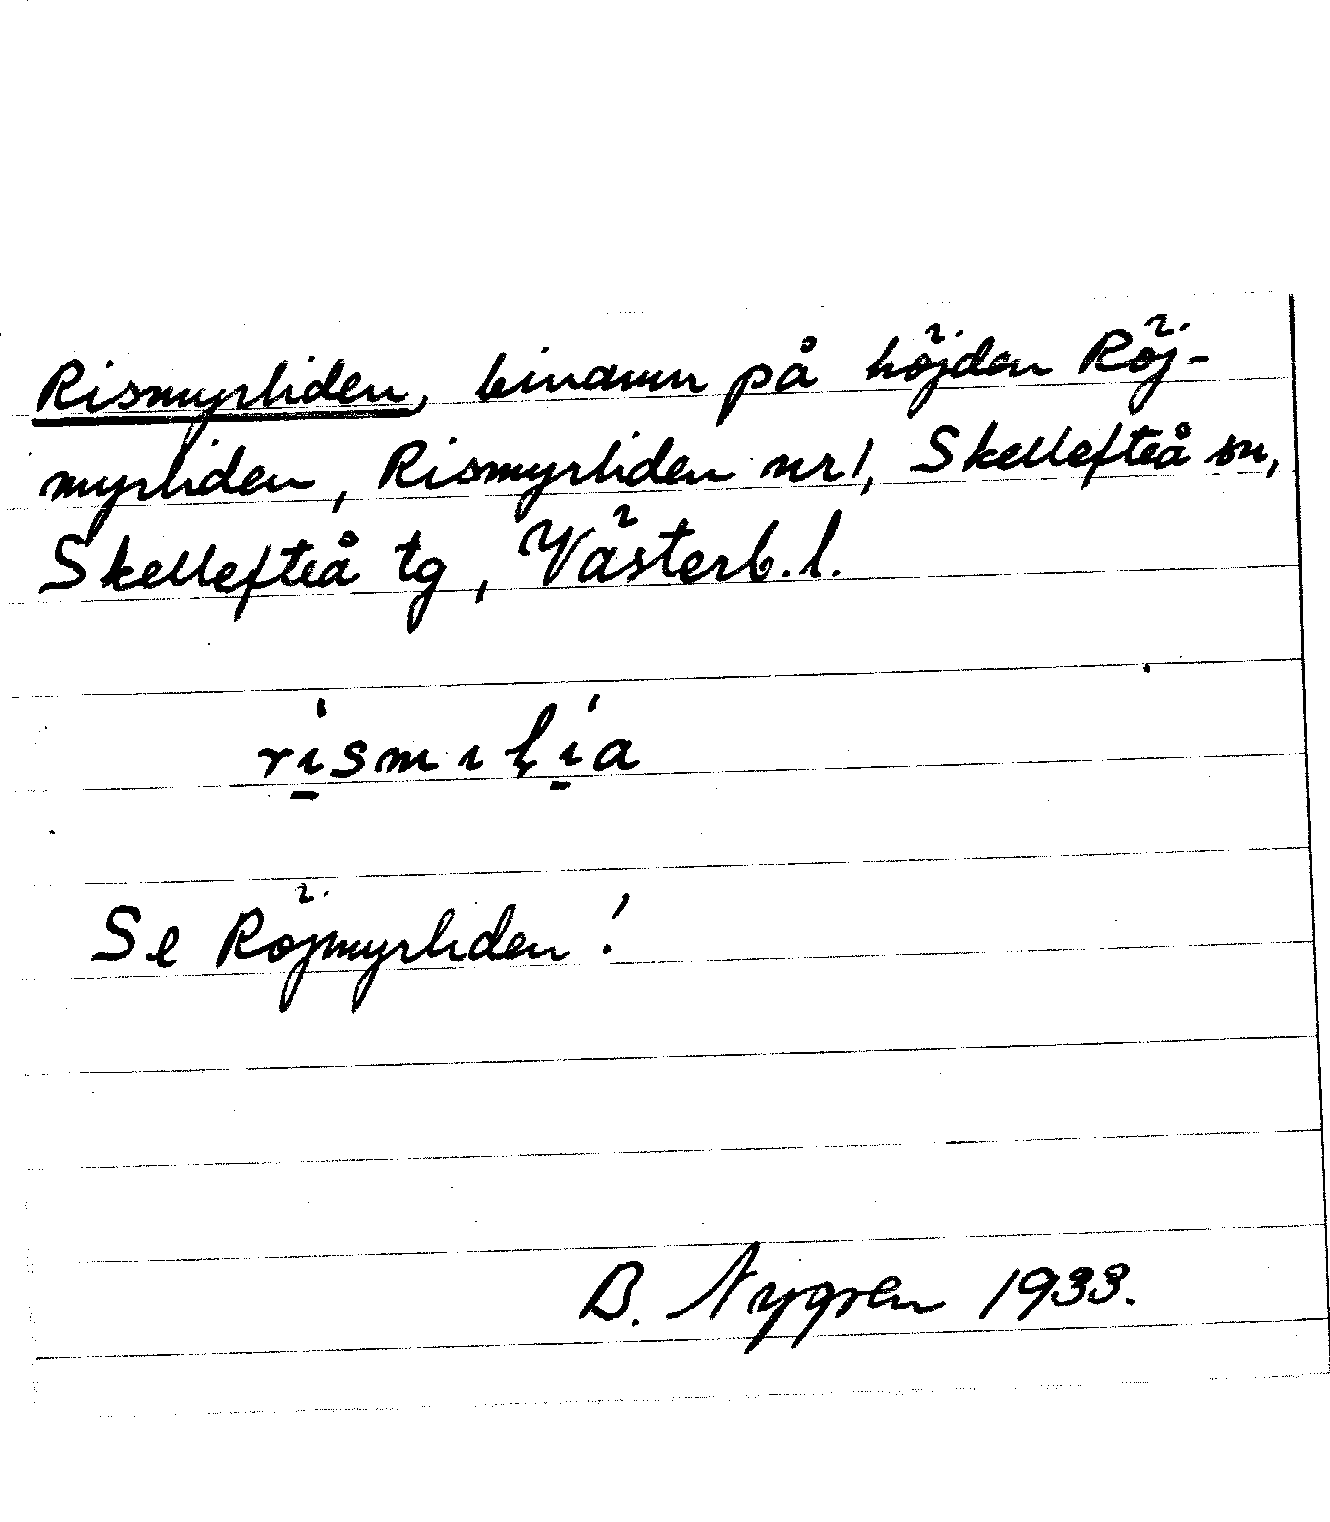 Rismyrliden, binamn på höjden Röj-
myrliden, Rismyrliden nr 1, Skellefteå sn,
Skellefteå tg, Västerb. l.
Se Röjmyrliden!
B. Nygren 1933.